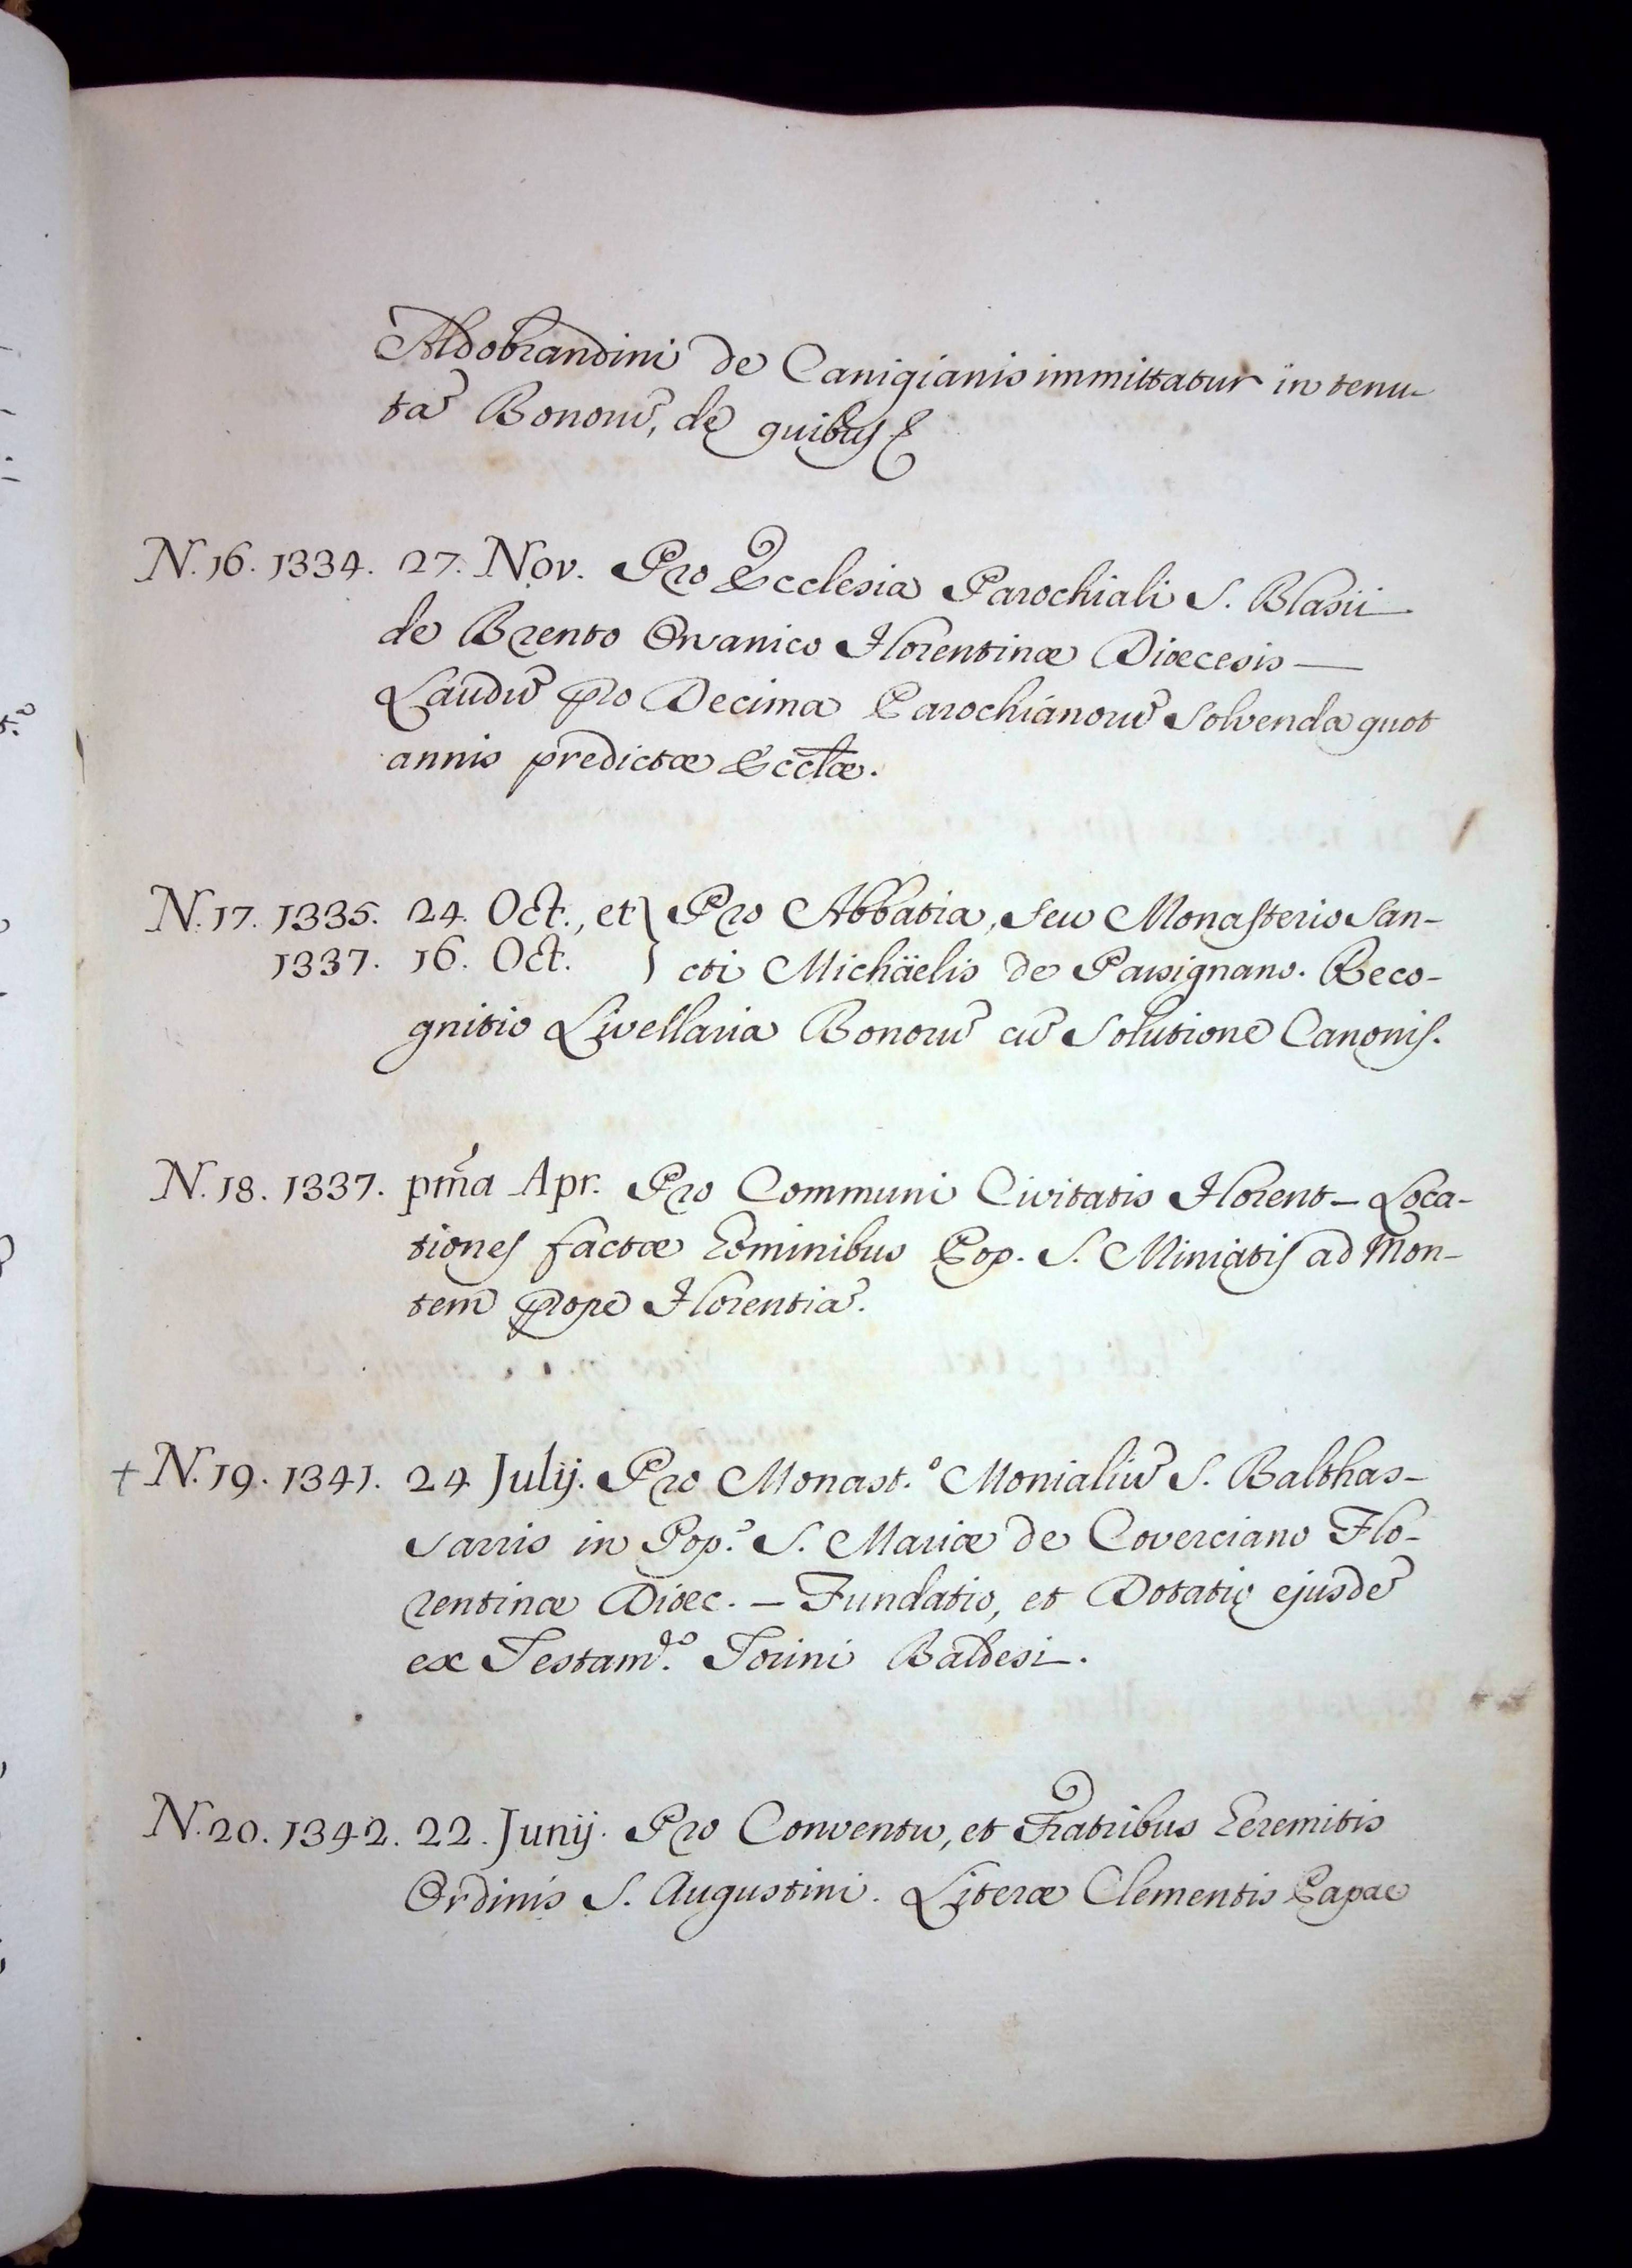 Aldobrandini de Canigianis immittatur in tenu-
tã Bonorũ, de quibus &
N. 16. 1334. 27. Nov. Pro Ecclesia Parochiali S. Blasii
de Brento Orvanico Florentinæ Diœcesis —
Laudũ pro Decima Parochianorũ solvenda quot
annis predictæ Eccl̃æ.
N. 17. 1335. 24. Oct., et } Pro Abbatia, seu Monasterio San-
1337. 16. Oct. } cti Michäelis de Passignano. Reco-
gnitio Livellaria Bonorũ cũ solutione Canonis.
N. 18. 1337. pm̃a Apr. Pro Communi Civitatis Florent — Loca-
tiones factæ Hominibus Pop. S. Miniatis ad Mon-
tem prope Florentiã.
+ N. 19. 1341. 24 Julij. Pro Monast.º Monialiũ S. Balthas-
sarris in Pop.º S. Mariæ de Coverciano Flo-
rentinæ Diœc. — Fundatio, et Dotatio ejusdẽ
ex Testam.º Torini Baldesi.
N. 20. 1342. 22. Junij. Pro Conventu, et Fratribus Heremitis
Ordinis S. Augustini. Literæ Clementis Papae